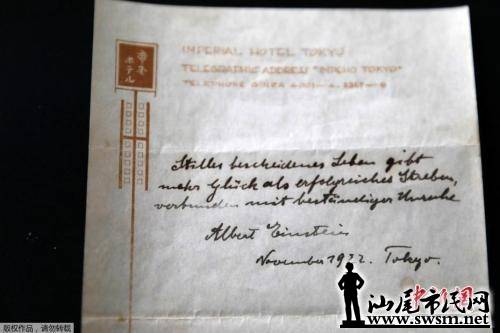 IMPERIAL HOTEL TOKYO
TELEGRAPHIC ADDRESS "IMPEHO TOKYO"
TELEPHONE GINZA
帝国
ホテル
Stilles bescheidenes Leben gibt
mehr Glück als erfolgreiches Streben,
verbunden mit beständiger Unruhe
Albert Einstein
November 1922. Tokyo.
汕尾市民网
www.swsm.net